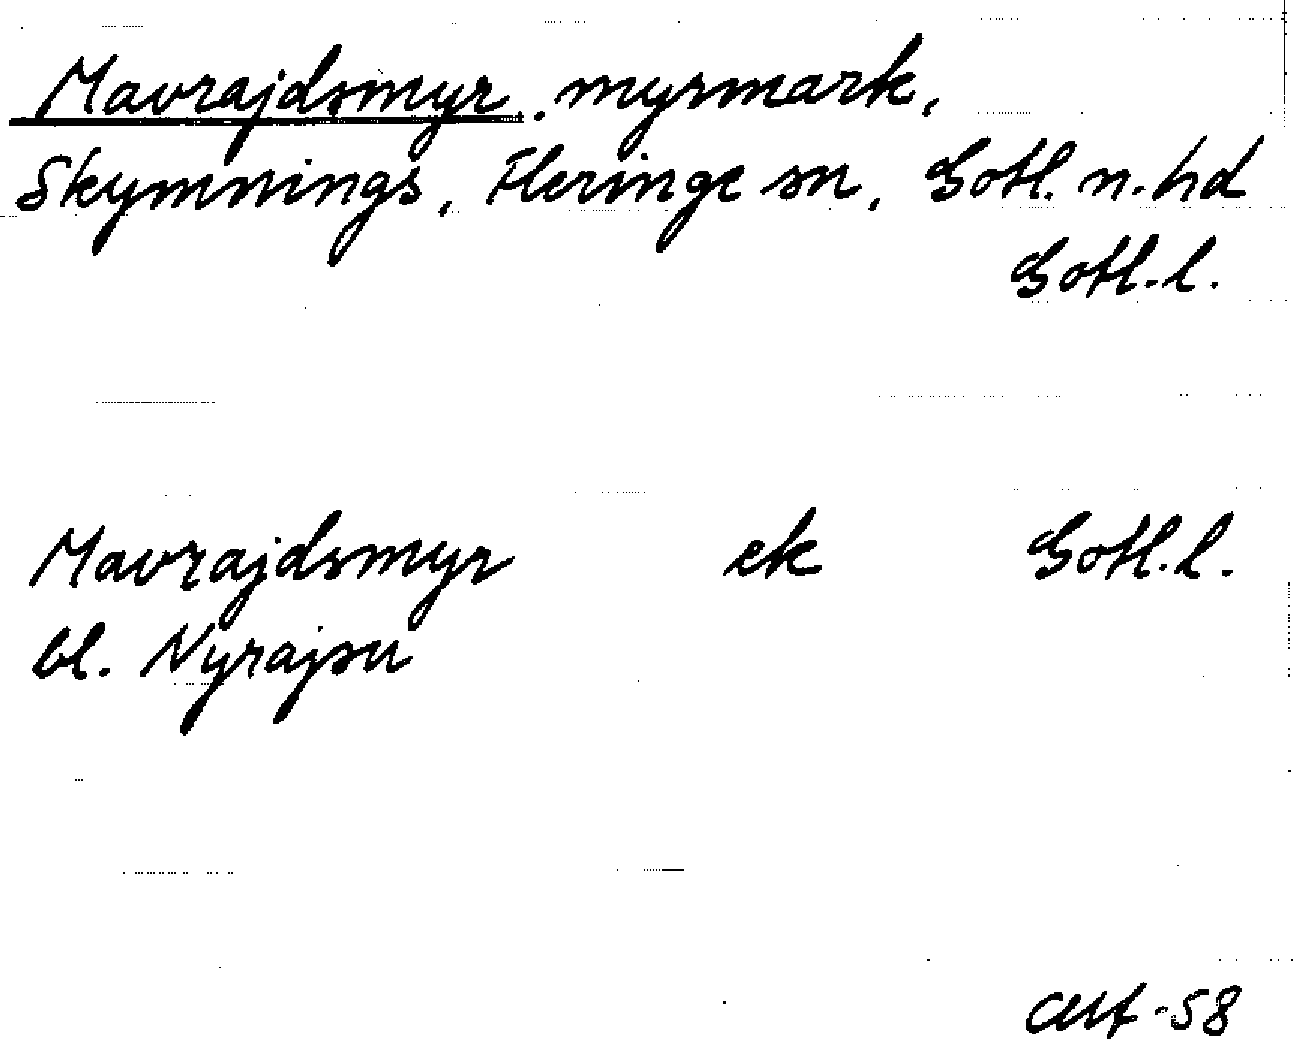 Mavrajdsmyr, myrmark,
Skymnings, Fleringe sn, Gotl. n. hd
Gotl. l.
Mavrajdsmyr ek Gotl. l.
bl. Nyrajsu
-58